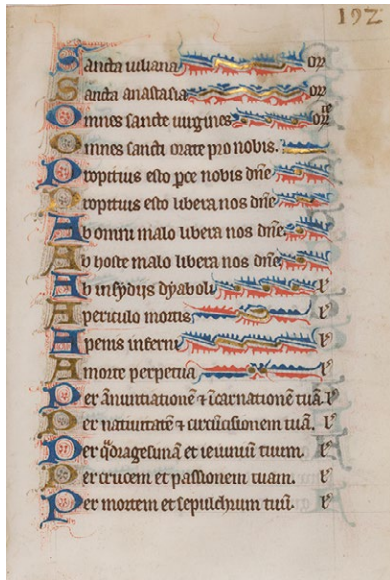 192
Sancta iuliana or̄
Sancta anastasia or̄
Omnes sancte uirgines or̄
Omnes sancti orate pro nobis.
Propitius esto p̄ce nobis dn̄e
Propitius esto libera nos dn̄e
Ab omni malo libera nos dn̄e
Ab hoste malo libera nos dn̄e
Ab insydijs dyaboli l
A periculo mortis l
A penis inferni l
A morte perpetua l
Per ānuntiationē ⁊ īcarnationē tuā. l
Per natiuitatē ⁊ circūcisionem tuā. l
Per q̄dragesimā et ieiuniū tuum. l
Per crucem et passionem tuam. l
Per mortem et sepulchrum tuū. l